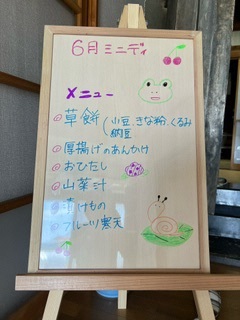 6月ミニデイ
メニュー
◎草餅(小豆、きな粉、くるみ
納豆
◎厚揚げのあんかけ
◎おひたし
◎山菜汁
◎漬けもの
◎フルーツ寒天